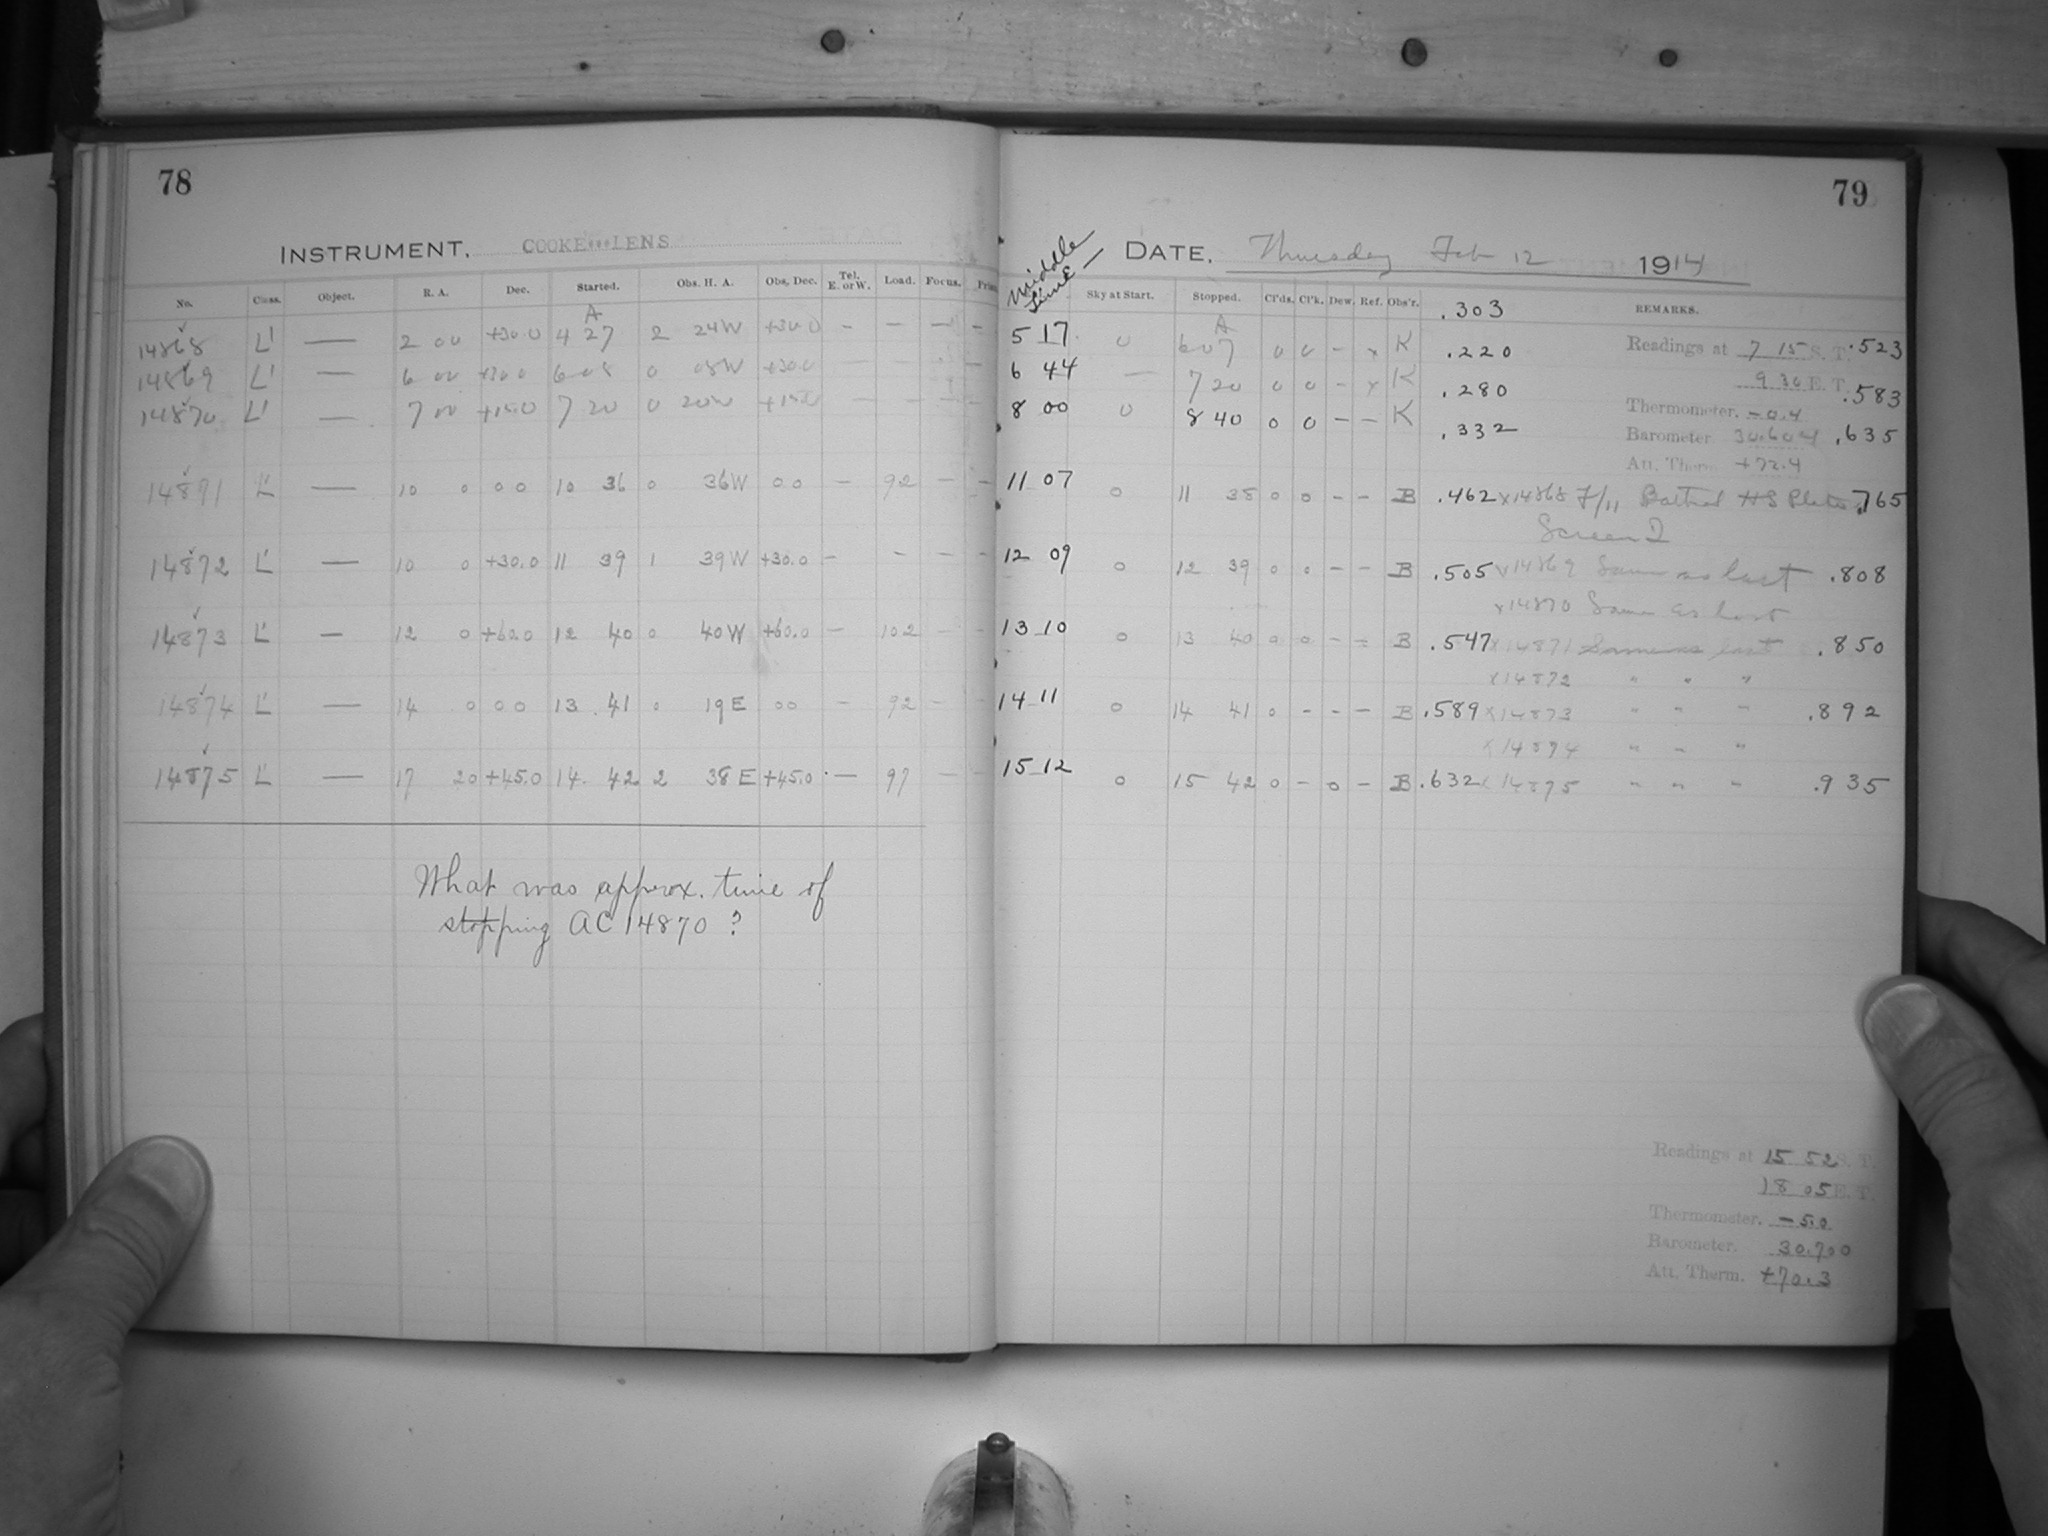 78
INSTRUMENT. COOKE LENS
No. Class. Object. R. A. Dec. Started. Obs. H. A. Obs. Dec. Tel. E. or W. Load. Focus.
A
14868 L' — 2 00 +30.0 4 27 2 24W +30.0 — — — —
14869 L' — 6 00 +30.0 6 08 0 08W +30.0 —
14870 L' — 7 00 +15.0 7 20 0 20W +15.0 — — — —
14871 L' — 10 0 00 10 36 0 36W 00 — 92 — —
14872 L' — 10 0 +30.0 11 39 1 39W +30.0 — — — —
14873 L' — 12 0 +60.0 12 40 0 40W +60.0 — 102 — —
14874 L' — 14 0 00 13 41 0 19E 00 — 92 — —
14875 L' — 17 20 +45.0 14 42 2 38E +45.0 — 97 — —
What was approx. time of
stopping AC 14870 ?
79
Middle Time
DATE. Thursday Feb 12 1914
Sky at Start. Stopped. Cl'ds. Cl'k. Dew. Ref. Obs'r. .303 REMARKS.
A
5 17 0 6 07 0 0 — x K .220 Readings at 7 15 S. T. .523
6 44 — 7 20 0 0 — x K .280 9 30 E. T. .583
8 00 0 8 40 0 0 — — K .332 Thermometer. -0.4
Barometer 30.604 .635
Att. Therm. +72.4
11 07 0 11 38 0 0 — — B .462 x14868 F/11 HS Plate .765
Screen I
12 09 0 12 39 0 0 — — B .505 x14869 Same as last .808
x14870 Same as last
13 10 0 13 40 0 0 — — B .547 x14871 Same as last .850
x14872 " " "
14 11 0 14 41 0 - - — B .589 x14873 " " " .892
x14874 " " "
15 12 0 15 42 0 - 0 - B .632 x14875 " " " .935
Readings at 15 52 S. T.
18 05 E. T.
Thermometer. -5.0
Barometer. 30.700
Att. Therm. +70.3